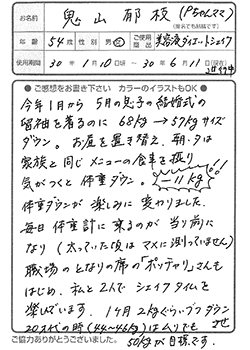 お名前
鬼山郁枝(Pちゃんママ)
(匿名でも結構です)
年齢 54歳 性別 男・女 ご使用商品 美容液ダイエットシェイク
使用期間 30年1月10日〜30年6月11日
●ご感想をお書き下さい カラーのイラストもOK●
今年1月から5月の息子の結婚式の
留袖を着るのに 68kg→57kgサイズ
ダウン。お昼を置き替え、朝・夕は
家族と同じメニューの食事を摂り
気がつくと体重ダウン。 -11kg!
体重ダウンが楽しみに変わりました。
毎日体重計に乗るのが当り前に
なり(太っていた頃はマメに測っていません)
職場のとなりの席の「ポッチャリ」さんも
はじめ、私と2人でシェイクタイムを
楽しんでいます。1ヶ月2kgぐらいづつダウンさせ
20才代の時(44〜46kg)はムリでも
50kgが目標です。
ご協力ありがとうございました。